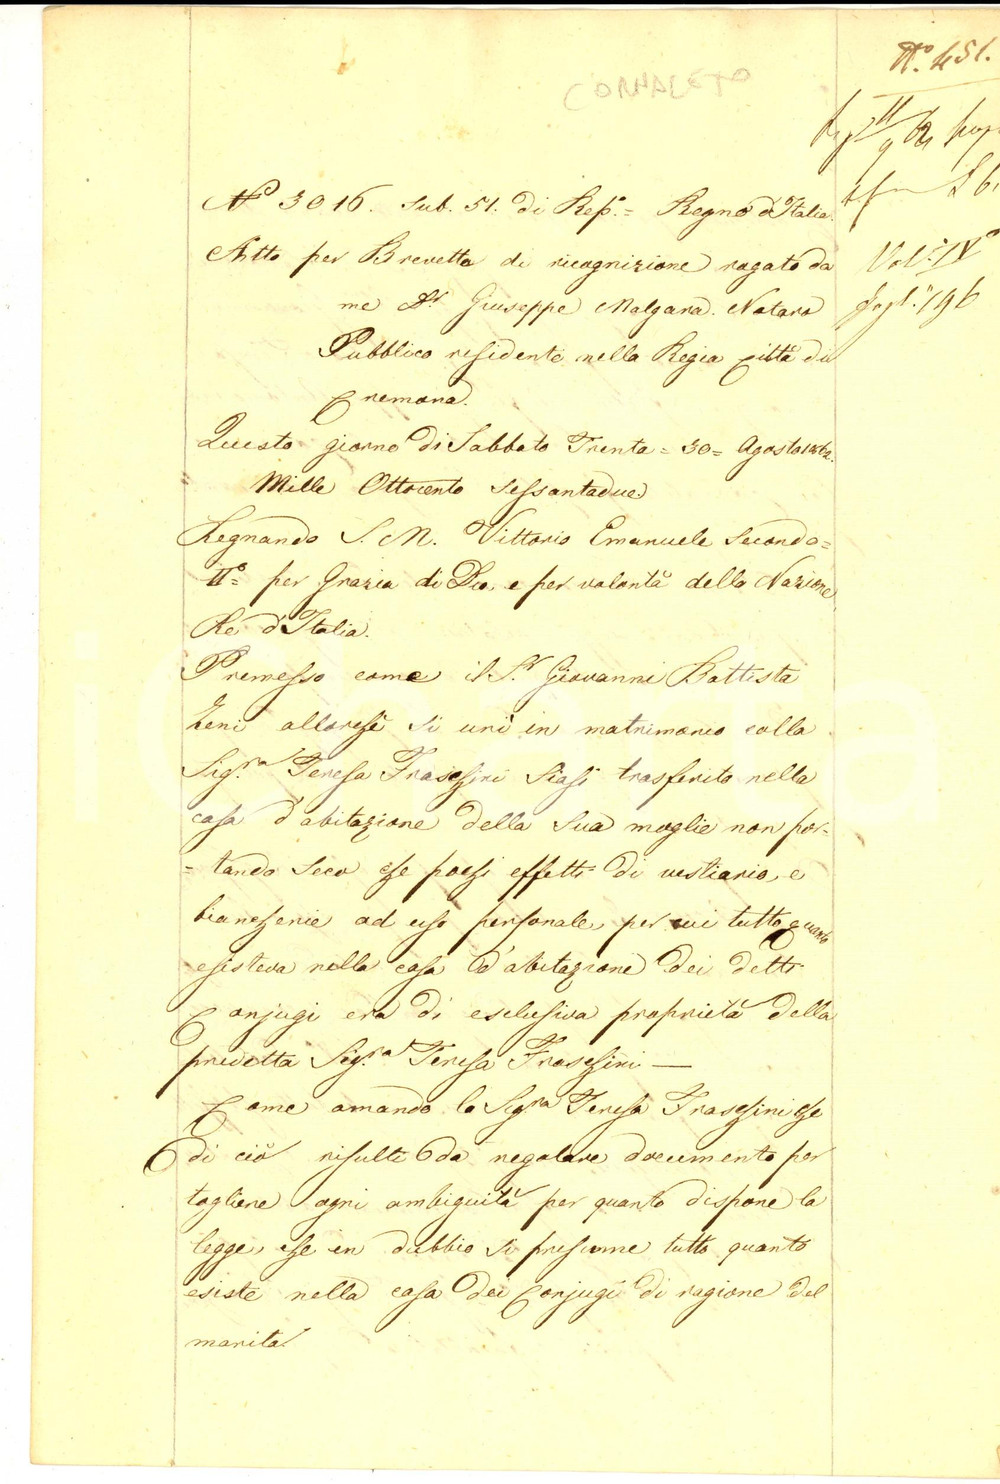 N.º 451.
CORNALETO
Vol.e IV°
fogl.º 196
N.º 3016. sub. 51. di Rep.º = Regno d'Italia.
Atto per Brevetto di ricognizione rogato da
me D.r Giuseppe Malgara. Notaro
Pubblico residente nella Regia Città di
Cremona.
Questo giorno di Sabbato Trenta = 30 = Agosto 1862.
Mille Ottocento Sessantadue
Regnando S. M. Vittorio Emanuele Secondo =
II.º = per Grazia di Dio, e per volontà della Nazione
Re d'Italia.
Premesso come il S.r Giovanni Battista
Zeni allorchè si unì in matrimonio colla
Sig.ra Teresa Fraschini siasi trasferito nella
casa d'abitazione della sua moglie non por-
= tando seco che pochi effetti di vestiario, e
biancherie ad uso personale, per cui tutto quanto
esisteva nella casa d'abitazione dei detti
Conjugi era di esclusiva proprietà della
predetta Sig.ra Teresa Fraschini —
Come amando la Sig.ra Teresa Fraschini che
di ciò risulti da regolare documento per
togliere ogni ambiguità per quanto dispone la
legge, che in dubbio si presume tutto quanto
esiste nella casa dei Conjugi di ragione del
marito